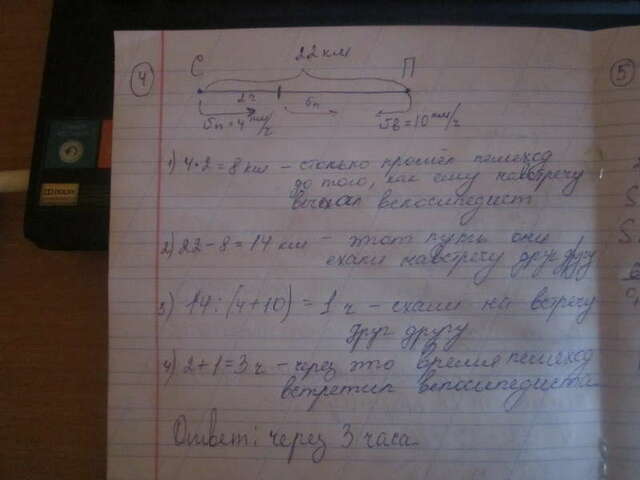 4
22 км
С
П
2ч
υп
υп = 4 км/ч
υв = 10 км/ч
5
1) 4·2 = 8 км – столько прошёл пешеход
до того, как ему навстречу
выехал велосипедист
2) 22 – 8 = 14 км – этот путь они
ехали навстречу друг другу
3) 14 : (4+10) = 1 ч – ехали на встречу
друг другу
4) 2+1 = 3 ч – через это время пешеход
встретил велосипедиста
Ответ: через 3 часа.
DOLBY